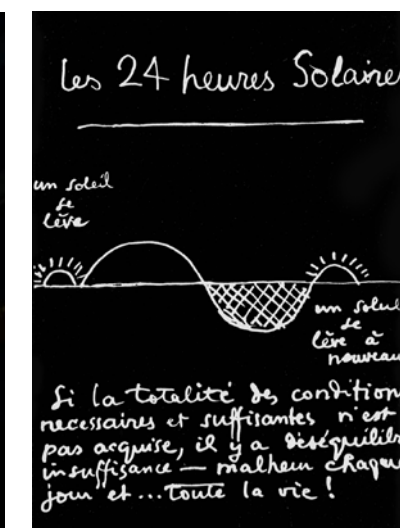 Les 24 heures Solaire
un soleil
se
lève
un soleil
se
lève à
nouveau
Si la totalité des condition
necessaires et suffisantes n'est
pas acquise, il y a déséquilibr
insuffisance — malheur chaque
jour et ... toute la vie !